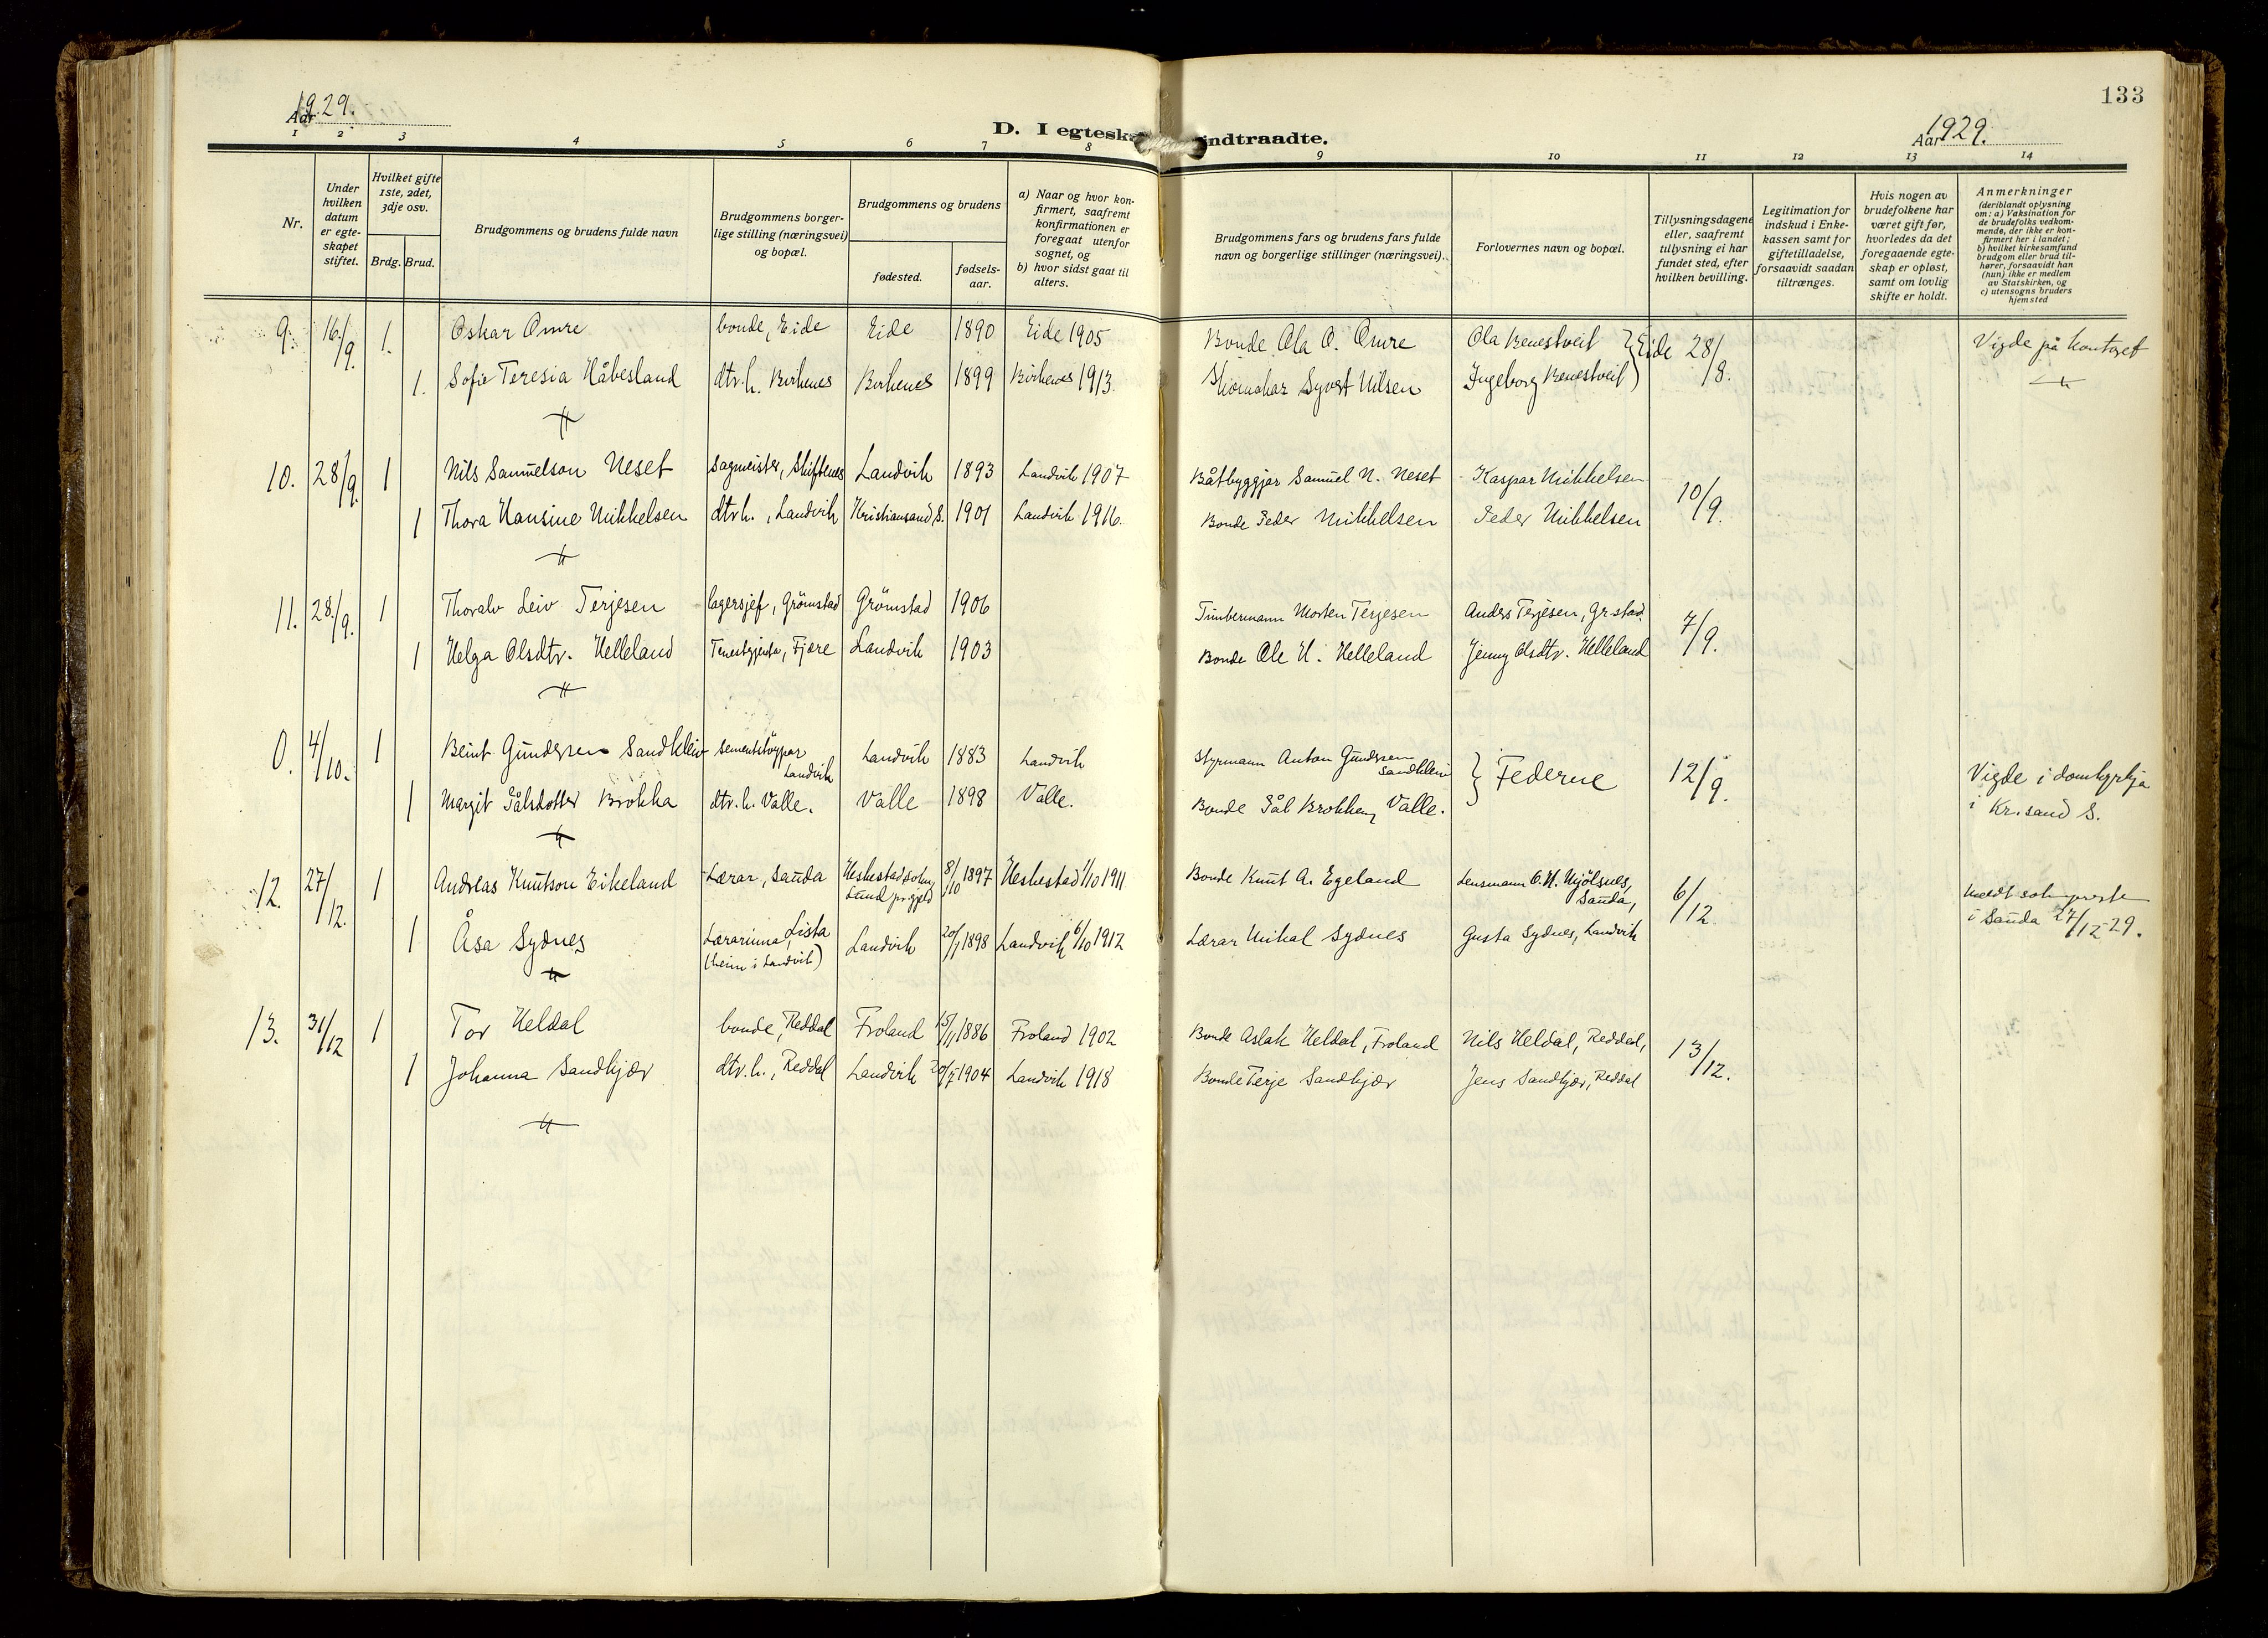 133
Aar 1929.
Aar 1929.
D. I egteska indtraadte.
1 2 3 4 5 6 7 8 9 10 11 12 13 14
Nr.
Under hvilken datum er egteskapet stiftet.
Hvilket gifte 1ste, 2det, 3dje osv.
Brdg. Brud.
Brudgommens og brudens fulde navn
Brudgommens borgerlige stilling (næringsvei) og bopæl.
Brudgommens og brudens
fødested.
fødselsaar.
a) Naar og hvor konfirmert, saafremt konfirmationen er foregaat utenfor sognet, og
b) hvor sidst gaat til alters.
Brudgommens fars og brudens fars fulde navn og borgerlige stillinger (næringsvei).
Forlovernes navn og bopæl.
Tillysningsdagene eller, saafremt tillysning ei har fundet sted, efter hvilken bevilling.
Legitimation for indskud i Enkekassen samt for giftetilladelse, forsaavidt saadan tiltrænges.
Hvis nogen av brudefolkene har været gift før, hvorledes da det foregaaende egteskap er opløst, samt om lovlig skifte er holdt.
Anmerkninger (deriblandt oplysning om: a) Vaksination for de brudefolks vedkommende, der ikke er konfirmert her i landet; b) hvilket kirkesamfund brudgom eller brud tilhører, forsaavidt han (hun) ikke er medlem av Statskirken, og c) utensogns bruders hjemsted
9. 16/9. 1. Oskar Omre bonde, Eide Eide 1890 Eide 1905 Bonde Ola O. Omre Ola Benestveit } Eide 28/8. Vigde på kontoret
1. Sofie Teresia Håbesland dtr. h. Birkenes Birkenes 1899 Birkenes 1913. Skomakar Syvert Nilsen Ingeborg Benestveit
10. 28/9. 1 Nils Samuelson Neset Sagmeister, Skiftenes Landvik 1893 Landvik 1907 Båtbyggjar Samuel N. Neset Kaspar Mikkelsen 10/9.
1 Thora Hansine Mikkelsen dtr. h., Landvik Kristiansand S. 1901 Landvik 1916. Bonde Peder Mikkelsen Peder Mikkelsen
11. 28/9. 1 Thoralv Leiv Terjesen lagersjef, Grømstad Grømstad 1906 Timbermann Morten Terjesen Anders Terjesen, Gr.stad. 7/9.
1 Helga Olsdtr. Helleland Tenestgjenta, Fjære Landvik 1903 Bonde Ole H. Helleland Jenny Olsdtr. Helleland
0. 4/10. 1 Beint Gundersen Sandkleiv sementstøypar Landvik Landvik 1883 Landvik Styrmann Anton Gundersen Sandkleiv } Federne 12/9. Vigde i domkyrkja
1 Margit Pålsdotter Brokka dtr. h. Valle. Valle 1898 Valle. Bonde Pål Brokken, Valle. i Kr.sand S.
12. 27/12. 1 Andreas Knutson Eikeland Lærar, Sauda Heskestad sokn, Lund pr.gjeld 8/10 1897 Heskestad 1/10 1911 Bonde Knut A. Egeland Lensmann O. H. Mjølsnes, Sauda, 6/12. Meldt sokneprest
1 Åsa Sydnes Lærarinna, Lista (heim i Landvik) Landvik 20/1 1898 Landvik 6/10 1912 Lærar Mikal Sydnes Gusta Sydnes, Landvik i Sauda 27/12-29.
13. 31/12 1 Tor Heldal bonde, Reddal Froland 15/11 1886 Froland 1902 Bonde Aslak Heldal, Froland Nils Heldal, Reddal, 13/12.
1 Johanna Sandkjær dtr. h., Reddal Landvik 20/5 1904 Landvik 1918 Bonde Terje Sandkjær Jens Sandkjær, Reddal